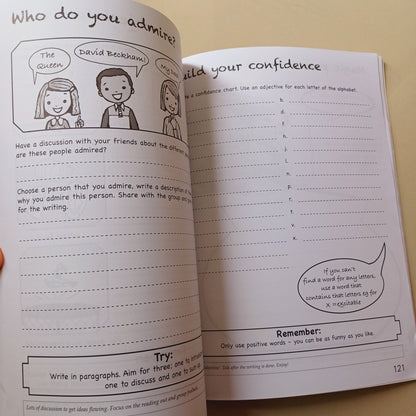 Who do you admire?
The
Queen
David Beckham!
My
Have a discussion with your friends about the different
are these people admired?
Choose a person that you admire, write a description of
why you admire this person. Share with the group and
for the writing.
Try:
Write in paragraphs. Aim for three; one to
one to discuss and one to sum
Lots of discussion to get ideas flowing. Focus on the reading out and group
uild your confidence
a confidence chart. Use an adjective for each letter of the alphabet.
b.
d.
f.
h.
j.
l.
n.
p.
r.
t.
v.
x.
If you can't
find a word for any letters,
use a word that
contains that letters eg for
x = excitable
Remember:
Only use positive words – you can be as funny as you like.
Talk after the writing is done. Enjoy!
121